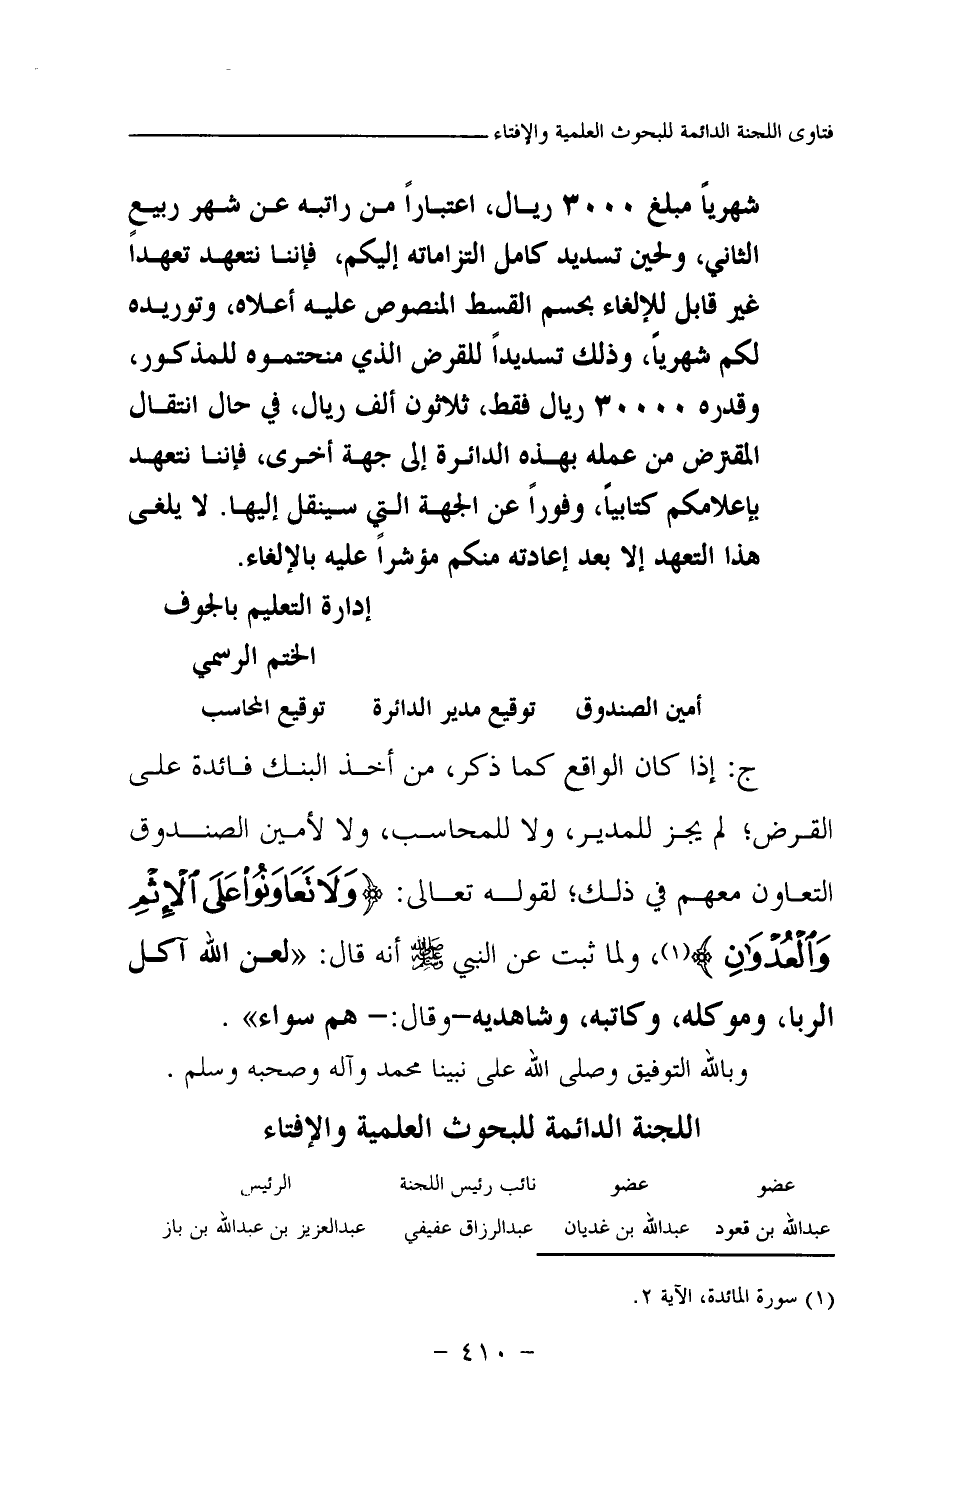 فتاوى اللجنة الدائمة للبحوث العلمية والإفتاء
شهرياً مبلغ ٣٠٠٠ ريال، اعتباراً من راتبه عن شهر ربيع
الثاني، ولحين تسديد كامل التزاماته إليكم، فإننا نتعهد تعهداً
غير قابل للإلغاء بحسم القسط المنصوص عليه أعلاه، وتوريده
لكم شهرياً، وذلك تسديداً للقرض الذي منحتموه للمذكور،
وقدره ٣٠٠٠٠ ريال فقط، ثلاثون ألف ريال، في حال انتقال
المقترض من عمله بهذه الدائرة إلى جهة أخرى، فإننا نتعهد
بإعلامكم كتابياً، وفوراً عن الجهة التي سينقل إليها. لا يلغى
هذا التعهد إلا بعد إعادته منكم مؤشراً عليه بالإلغاء.
إدارة التعليم بالجوف
الختم الرسمي
أمين الصندوق توقيع مدير الدائرة توقيع المحاسب
ج: إذا كان الواقع كما ذكر، من أخذ البنك فائدة على
القرض؛ لم يجز للمدير، ولا للمحاسب، ولا لأمين الصندوق
التعاون معهم في ذلك؛ لقوله تعالى: ﴿وَلَا تَعَاوَنُوا۟ عَلَى ٱلْإِثْمِ
وَٱلْعُدْوَٰنِ﴾(١)، ولما ثبت عن النبي ﷺ أنه قال: «لعن الله آكل
الربا، وموكله، وكاتبه، وشاهديه–وقال:– هم سواء» .
وبالله التوفيق وصلى الله على نبينا محمد وآله وصحبه وسلم .
اللجنة الدائمة للبحوث العلمية والإفتاء
عضو عضو نائب رئيس اللجنة الرئيس
عبدالله بن قعود عبدالله بن غديان عبدالرزاق عفيفي عبدالعزيز بن عبدالله بن باز
(١) سورة المائدة، الآية ٢.
– ٤١٠ –